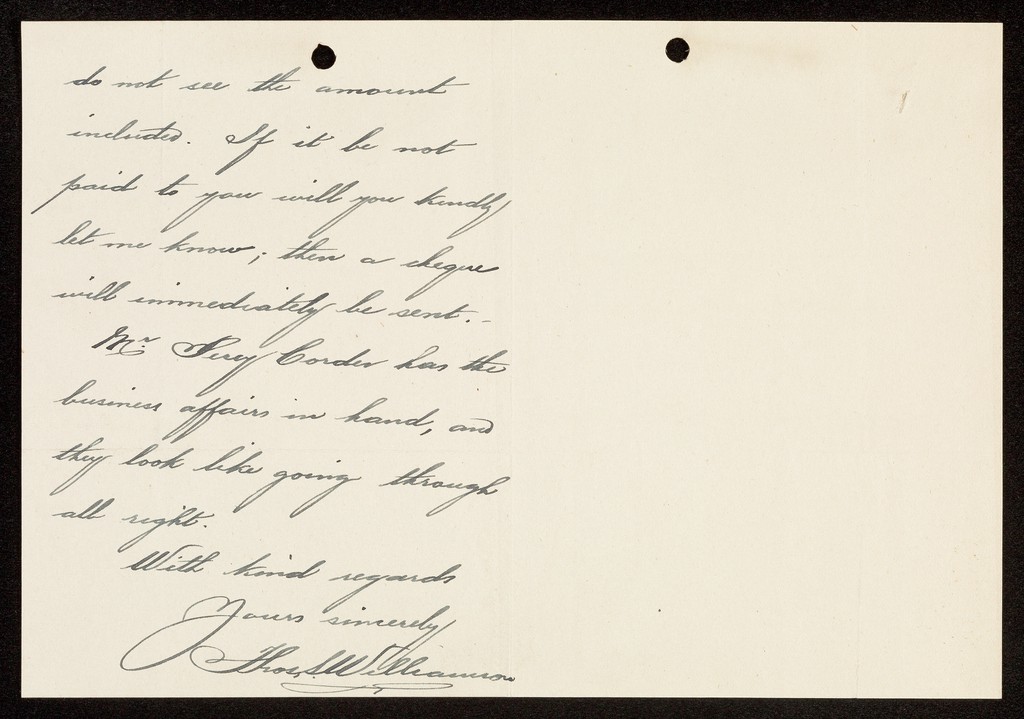 do not see the amount
included. If it be not
paid to you will you kindly
let me know; then a cheque
will immediately be sent.-
Mr. Percy Corder has the
business affairs in hand, and
they look like going through
all right.
With kind regards
Yours sincerely
Thos. Williamson